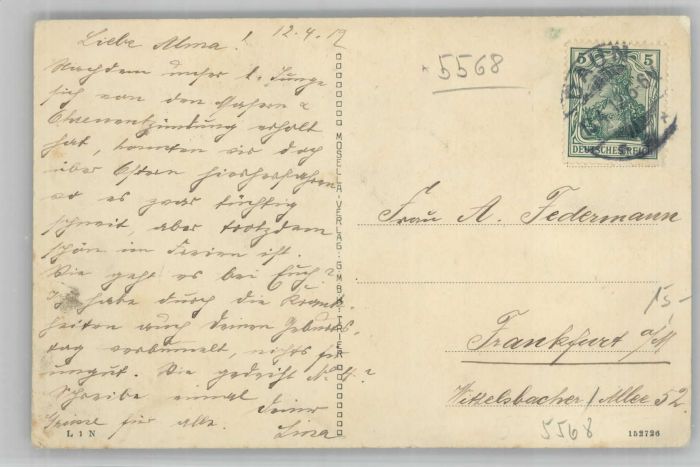 12.4.12
Liebe Alma!
Nachdem unser l. Junge
sich von den Masern &
Ohrenentzündung erholt
hat, konnten wir doch
über Ostern hierherfahren
wo es zwar tüchtig
schneit, aber trotzdem
schön im Freien ist.
Wie geht es bei Euch?
Ich habe durch die Krank-
heiten auch deinen Geburts-
tag verbummelt, nichts für
ungut. Wie gedeiht
Schreibe einmal
Grüsse für alle. Deine
Lina
L 1 N
MOSELLA-VERLAG G.M.B.H. TRIER
5568
5 5
DEUTSCHES REICH
DAUN
Frau A. Federmann
15-
Frankfurt a/M
Wittelsbacher Allee 52.
5568
152726